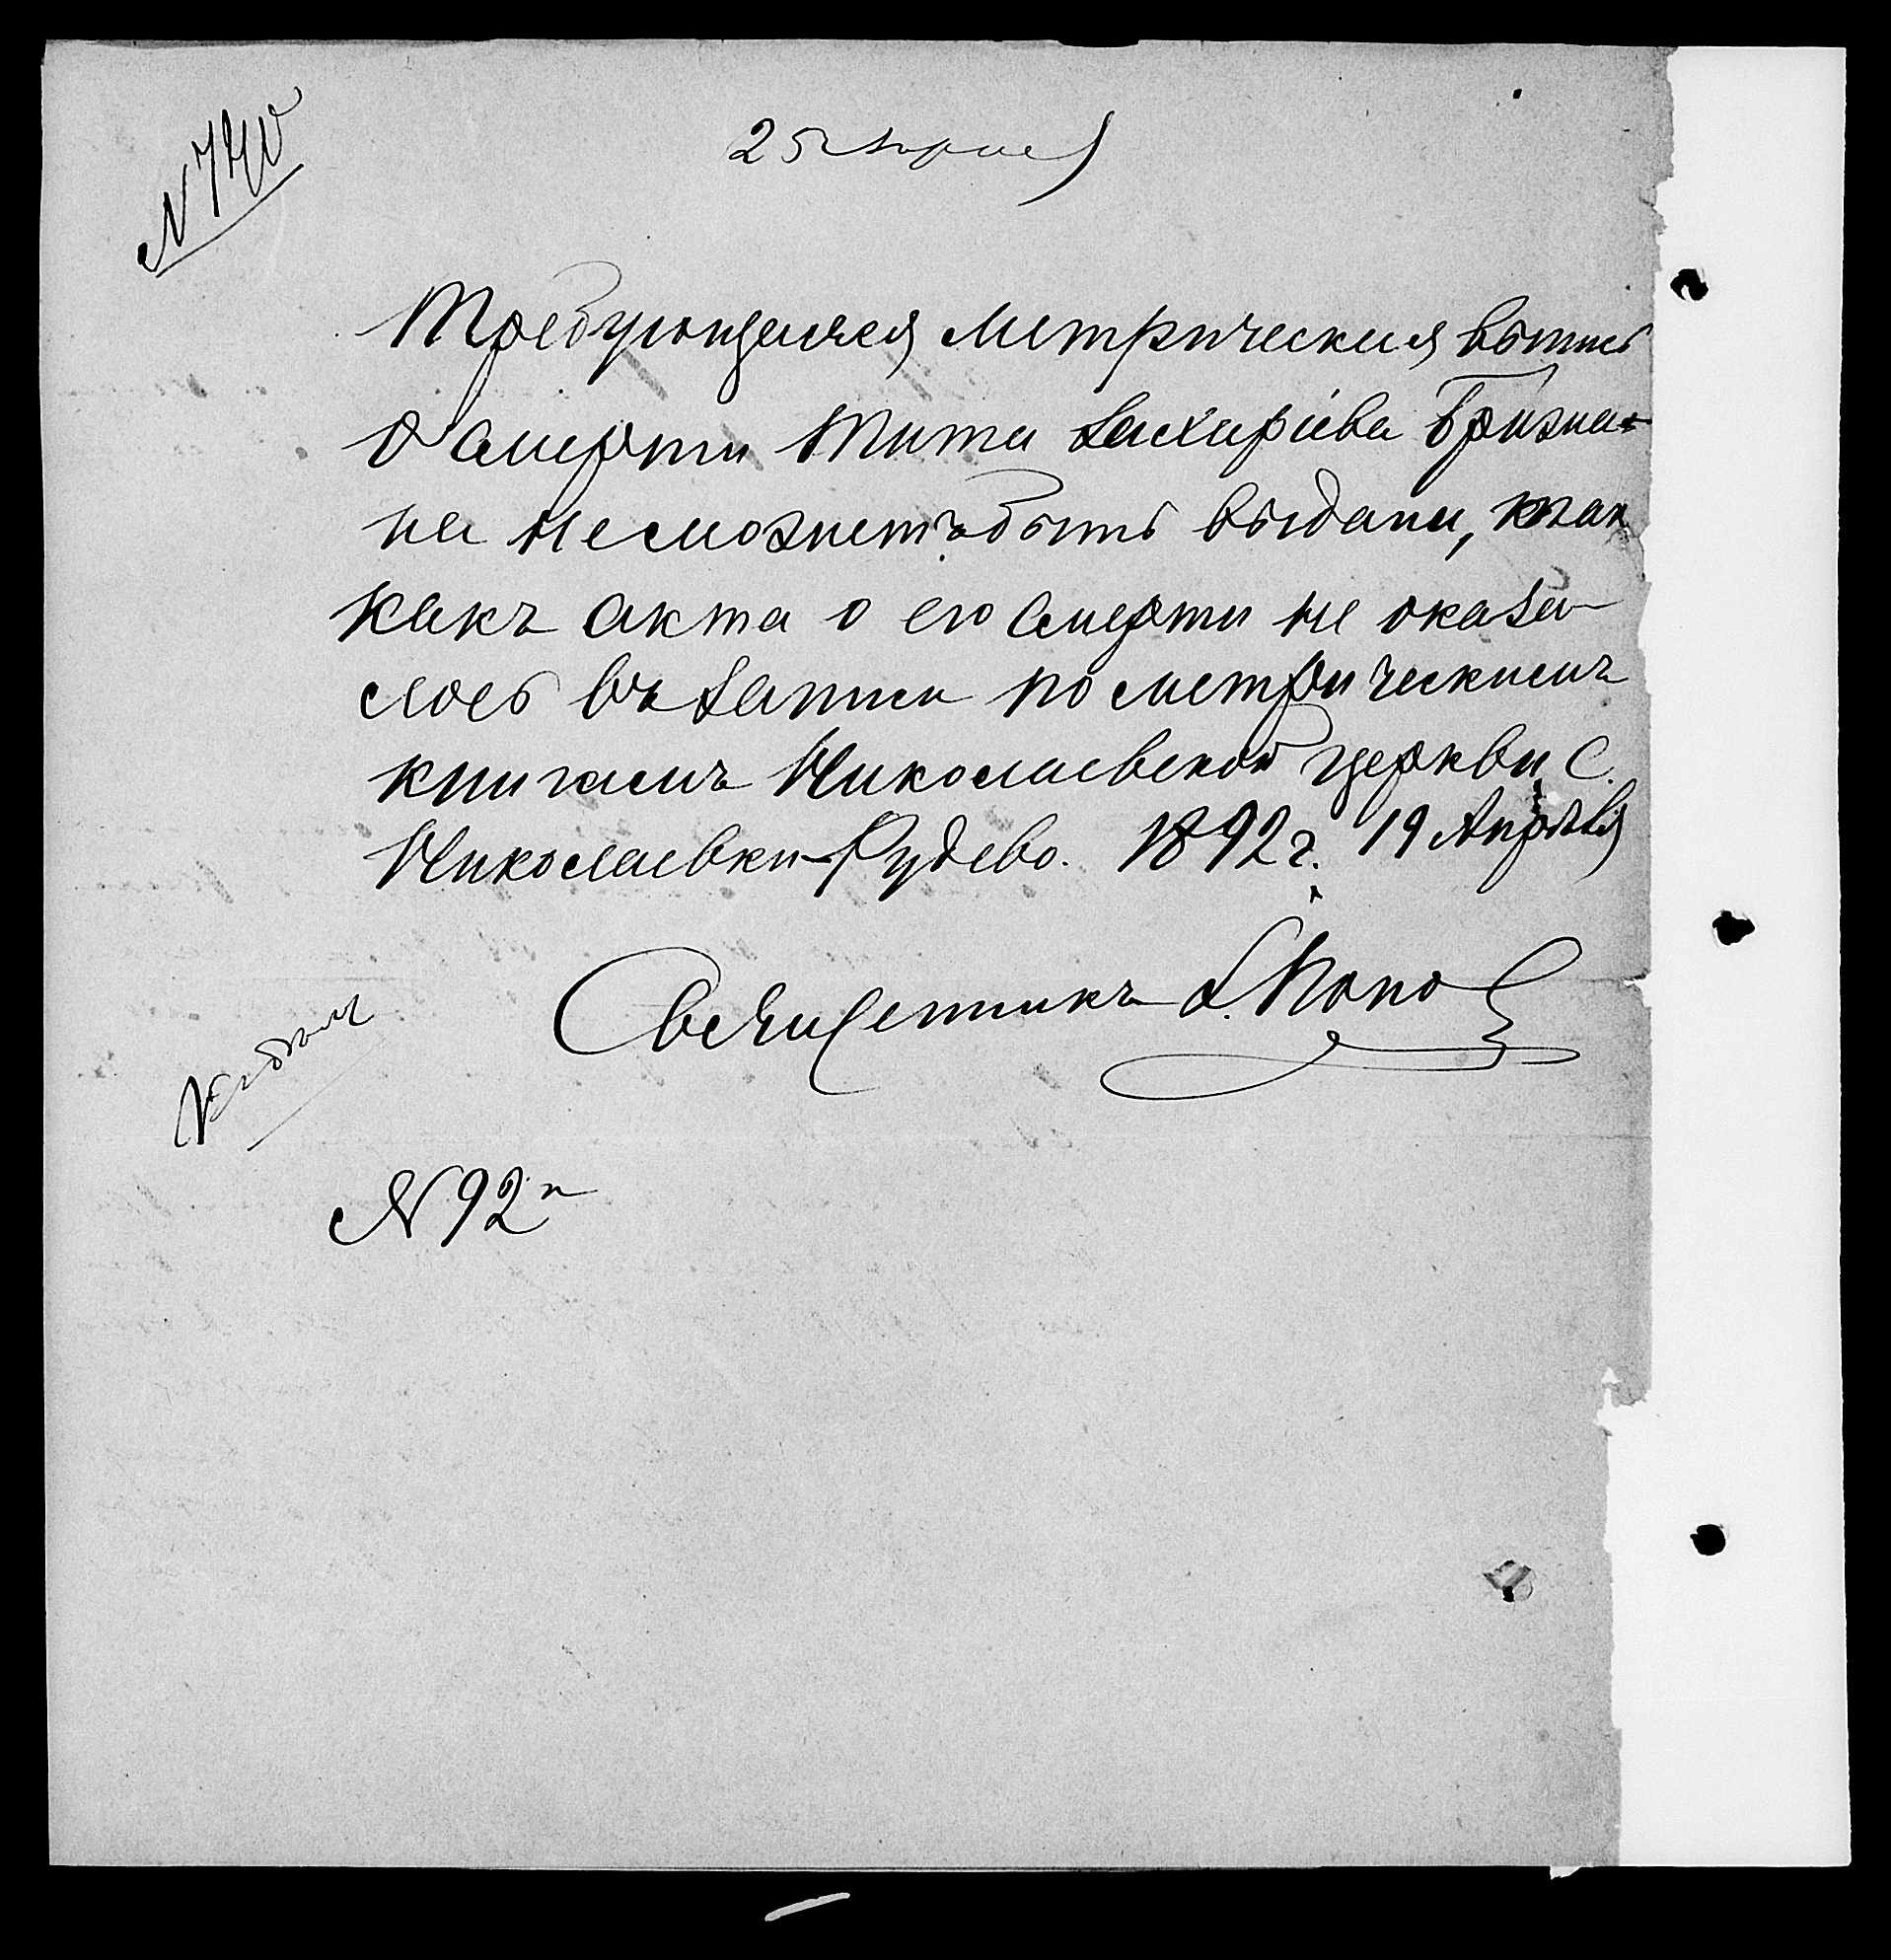 N 740
25 апреля
Требующаяся метрическая выпись
о смерти Тита Захарiева Бризна-
на не можетъ быть выдана, так
какъ акта о его смерти не оказа-
лось въ записи по метрическимъ
книгамъ Николаевской церкви с.
Николаевки-Рудево. 1892 г. 19 Апреля
Священникъ Попов
N 92